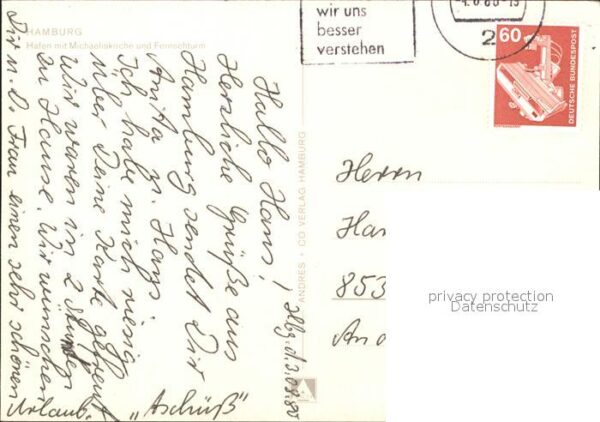 HAMBURG
Hafen mit Michaeliskirche und Fernsehturm
Hallo Hans!
Herzliche Grüße aus
Hamburg sendet Dir
Anita u. Hans.
Ich habe mich riesig
über Deine Karte gefreut
Wir waren in 2 Stunden
zu Hause. Wir wünschen
Dir u. D. Frau einen sehr schönen
Urlaub. "Aschüß"
d. 3.09.80
ANDRES · CO VERLAG HAMBURG
wir uns
besser
verstehen
60
DEUTSCHE BUNDESPOST
Herrn
Han
853
privacy protection
Datenschutz